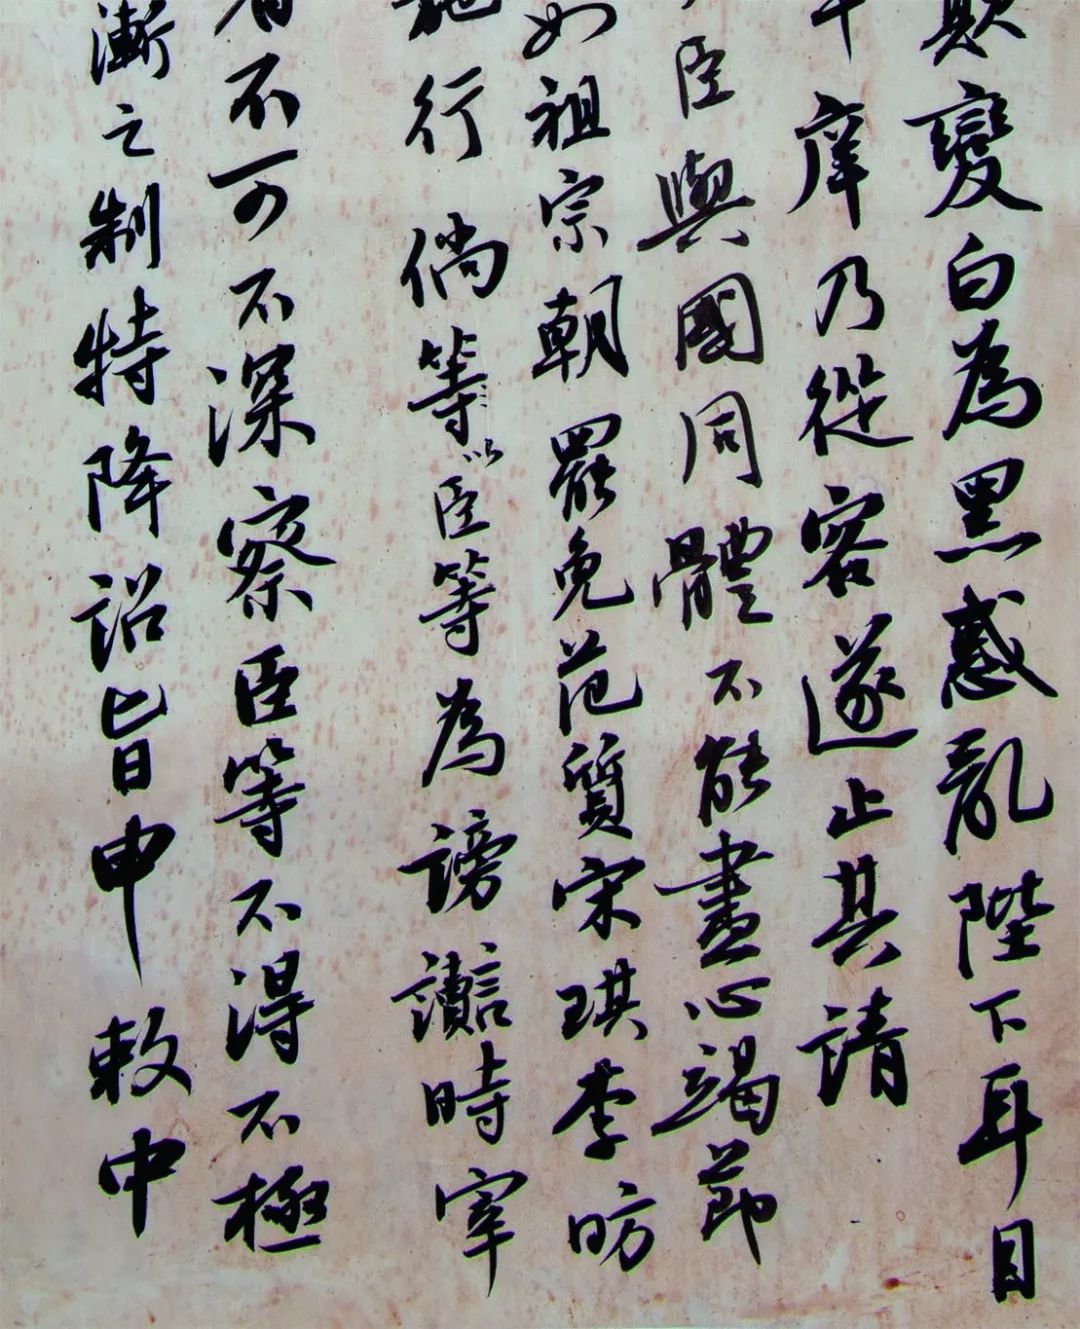 欺變白為黑惑亂陛下耳目
宰乃從容遂止其請
臣與國同體不能盡心竭節
如祖宗朝罷免范質宋琪李昉
施行倘等以臣等為謗讟時宰
不可不深察臣等不得不極
漸之制特降詔旨申敕中